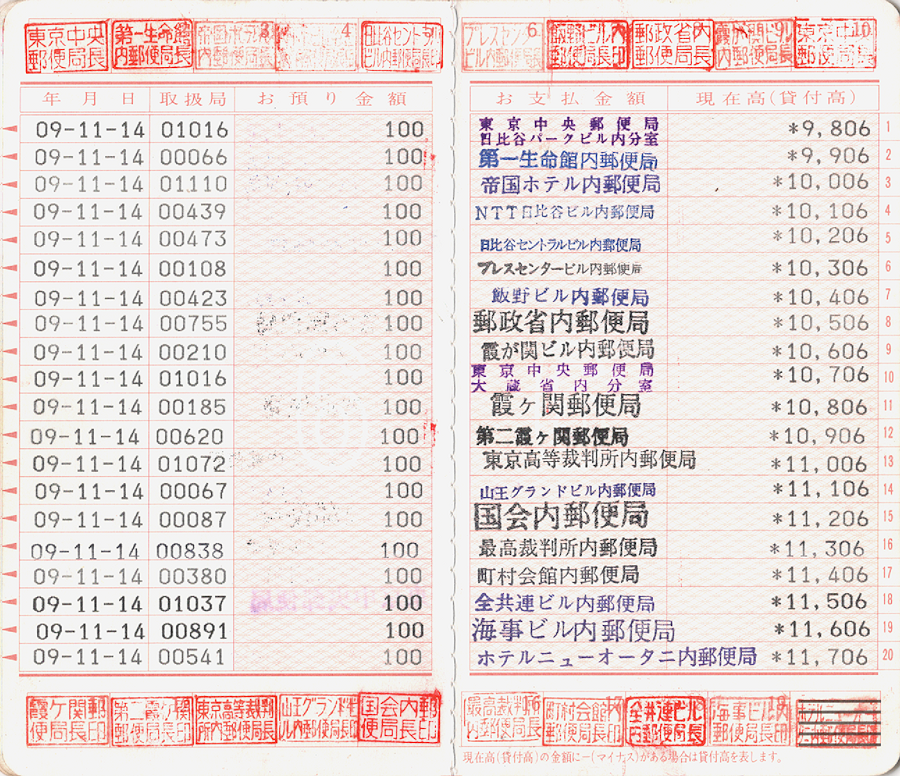 東京中央郵便局長
第一生命館内郵便局長
3
4
日比谷セントラルビル内郵便局長印
6
プレスセンタービル内郵便局長
飯野ビル内郵便局長印
郵政省内郵便局長
霞が関ビル内郵便局長
10
年月日 取扱局 お預り金額 お支払金額 現在高(貸付高)
09-11-14 01016 100 東京中央郵便局 日比谷パークビル内分室 *9,806 1
09-11-14 00066 100 第一生命館内郵便局 *9,906 2
09-11-14 01110 100 帝国ホテル内郵便局 *10,006 3
09-11-14 00439 100 NTT日比谷ビル内郵便局 *10,106 4
09-11-14 00473 100 日比谷セントラルビル内郵便局 *10,206 5
09-11-14 00108 100 プレスセンタービル内郵便局 *10,306 6
09-11-14 00423 100 飯野ビル内郵便局 *10,406 7
09-11-14 00755 100 郵政省内郵便局 *10,506 8
09-11-14 00210 100 霞が関ビル内郵便局 *10,606 9
09-11-14 01016 100 東京中央郵便局 大蔵省内分室 *10,706 10
09-11-14 00185 100 霞ヶ関郵便局 *10,806 11
09-11-14 00620 100 第二霞ヶ関郵便局 *10,906 12
09-11-14 01072 100 東京高等裁判所内郵便局 *11,006 13
09-11-14 00067 100 山王グランドビル内郵便局 *11,106 14
09-11-14 00087 100 国会内郵便局 *11,206 15
09-11-14 00838 100 最高裁判所内郵便局 *11,306 16
09-11-14 00380 100 町村会館内郵便局 *11,406 17
09-11-14 01037 100 全共連ビル内郵便局 *11,506 18
09-11-14 00891 100 海事ビル内郵便局 *11,606 19
09-11-14 00541 100 ホテルニューオータニ内郵便局 *11,706 20
霞ケ関郵便局長印
第二霞ケ関郵便局長印
東京高等裁判所内郵便局長
山王グランドビル内郵便局長印
国会内郵便局長印
最高裁判所内郵便局長
町村会館内郵便局長印
全共連ビル内郵便局長
海事ビル内郵便局長印
現在高(貸付高)の金額に-(マイナス)がある場合は貸付高を表します。